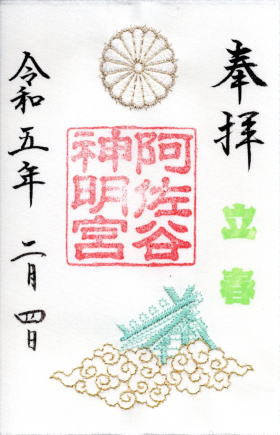 奉拝
立春
阿佐谷
神明宮
令和五年 二月四日